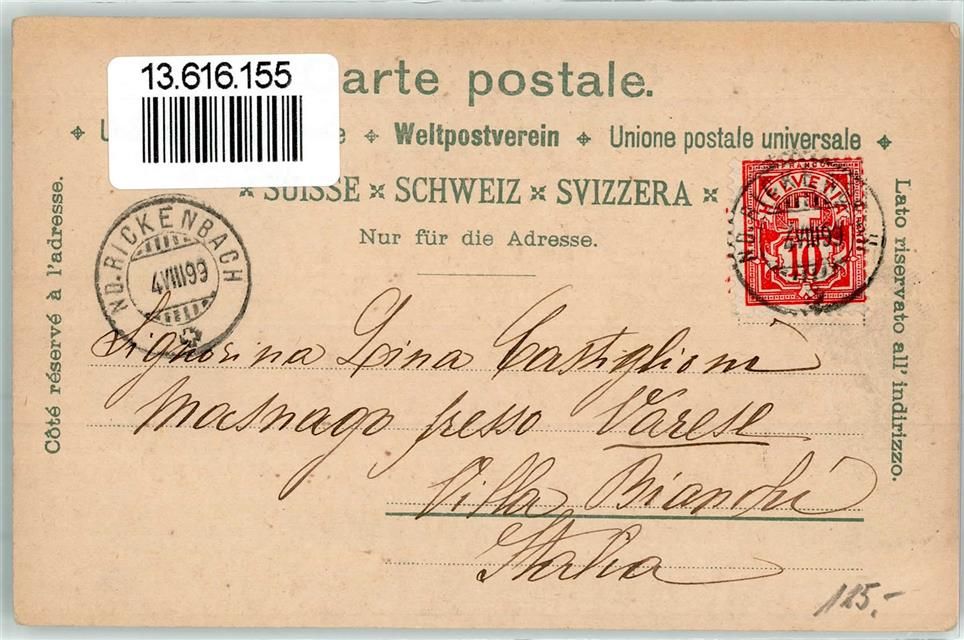 13.616.155
arte postale.
Weltpostverein Unione postale universale
SUISSE × SCHWEIZ × SVIZZERA
Nur für die Adresse.
Côté réservé à l'adresse.
Lato riservato all' indirizzo.
ND. RICKENBACH
4 VIII 99
FRANCO
HELVETIA
4 VIII 99
10
Signorina Lina Castiglioni
Masnago presso Varese
Villa Bianchi
Italia
125.-